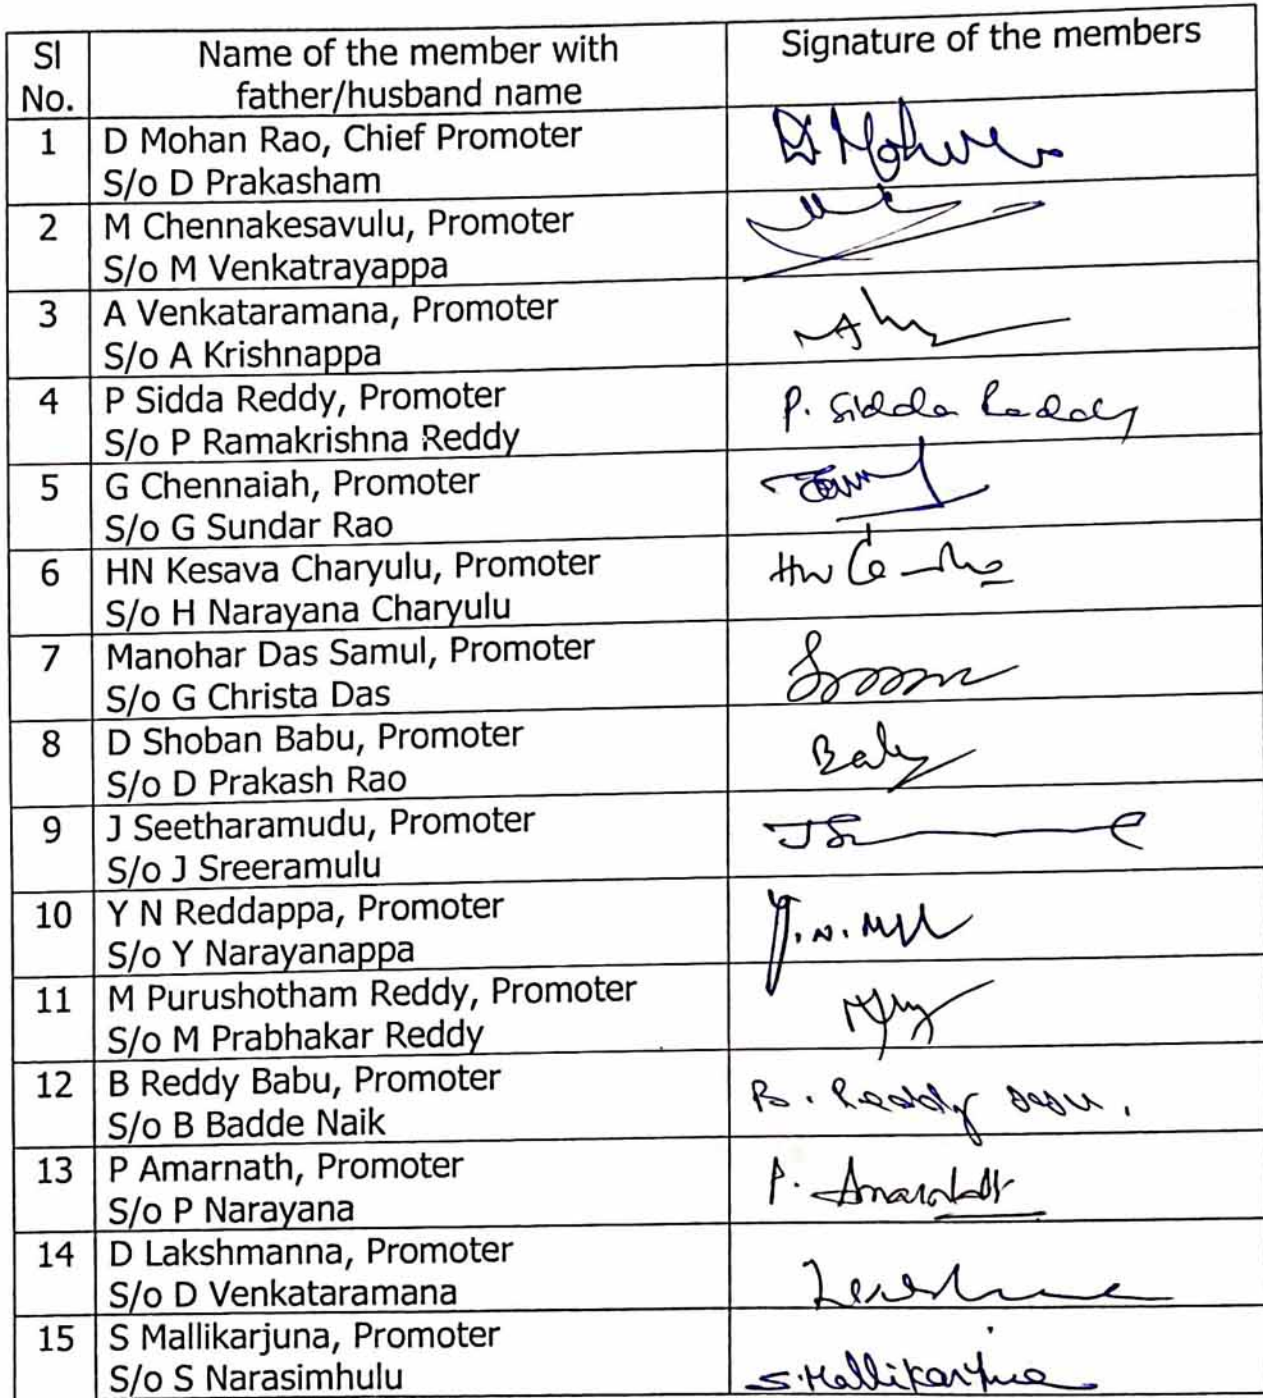 Sl No. Name of the member with father/husband name Signature of the members
1 D Mohan Rao, Chief Promoter
S/o D Prakasham
2 M Chennakesavulu, Promoter
S/o M Venkatrayappa
3 A Venkataramana, Promoter
S/o A Krishnappa
4 P Sidda Reddy, Promoter P. Sidda Reddy
S/o P Ramakrishna Reddy
5 G Chennaiah, Promoter
S/o G Sundar Rao
6 HN Kesava Charyulu, Promoter
S/o H Narayana Charyulu
7 Manohar Das Samul, Promoter
S/o G Christa Das
8 D Shoban Babu, Promoter
S/o D Prakash Rao
9 J Seetharamudu, Promoter
S/o J Sreeramulu
10 Y N Reddappa, Promoter
S/o Y Narayanappa
11 M Purushotham Reddy, Promoter
S/o M Prabhakar Reddy
12 B Reddy Babu, Promoter B. Reddy
S/o B Badde Naik
13 P Amarnath, Promoter P. Amarnath
S/o P Narayana
14 D Lakshmanna, Promoter
S/o D Venkataramana
15 S Mallikarjuna, Promoter S. Mallikarjuna
S/o S Narasimhulu